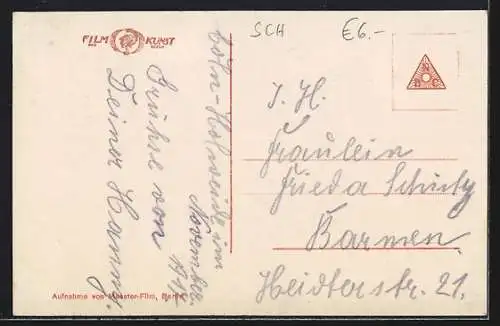 FILM KUNST
SCH €6.-
N
B C
Cöln-Holweide im
November 1918
Grüße von
Deiner Hanny.
I. H.
Fräulein
Frieda Schütz
Barmen.
Heidterstr. 21.
Aufnahme von Messter-Film, Berlin